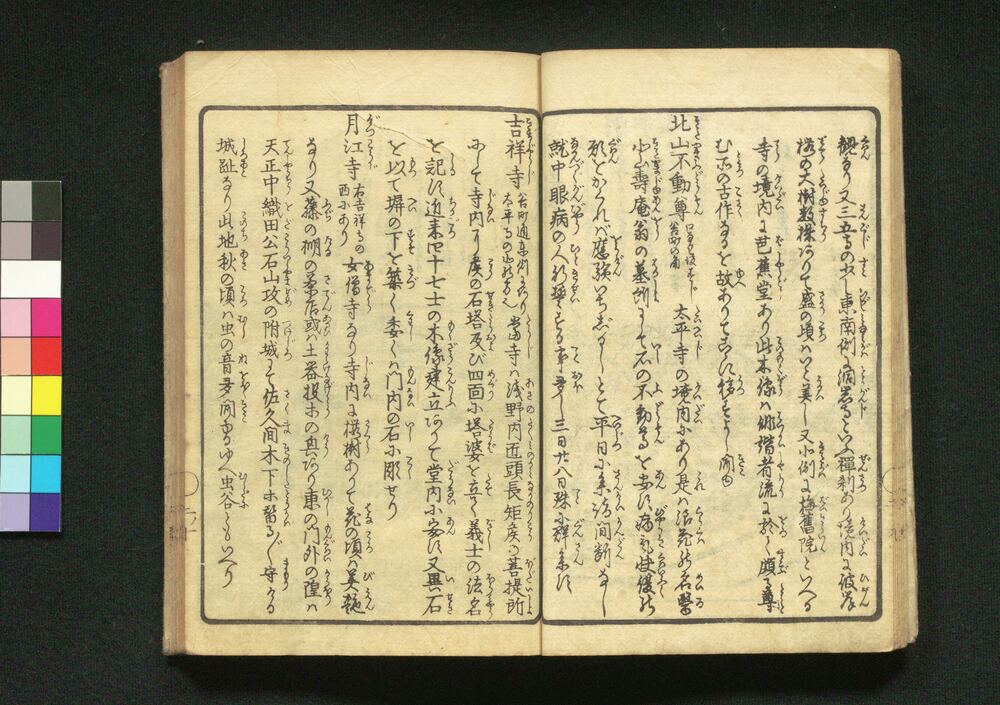 観あり又三五寺の少し東南側に洞岩寺といふ禅刹あり境内に彼岸
桜の大樹数株ありて盛の頃はいと美し又北側に梅旧院といへる
寺の境内に芭蕉堂あり此木像は俳諧者流に於て頗る尊
む所の古作なるを故ありてこゝに移せしと聞ゆ
北山不動尊 太平寺の境内にあり是は浪花の名医
北山寿庵翁の墓碑にして石の不動尊を安ず病気快復の
願をかくれば応験いちじるしとて平日に参詣間断なし
就中眼病の人祈誓する事多し三日廿八日殊に群参す
吉祥寺 当寺は浅野内匠頭長矩侯の菩提所
にして寺内に侯の石塔及び四面に塔婆を立て義士の法名
を記す近来四十七士の木像建立ありて堂内に安ず又奥石
を以て塀の下を築く委しくは門内の石に彫せり
月江寺 右吉祥寺の西にあり 女僧寺なり寺内に桜樹ありて花の頃は美艶
なり又藤の棚の茶店或は土器投等の興あり東の門外の隍は
天正中織田公石山攻の附城にて佐久間木下等暫らく守れる
城趾なり此地秋の頃は虫の音多聞ゆるゆへ虫谷ともいへり